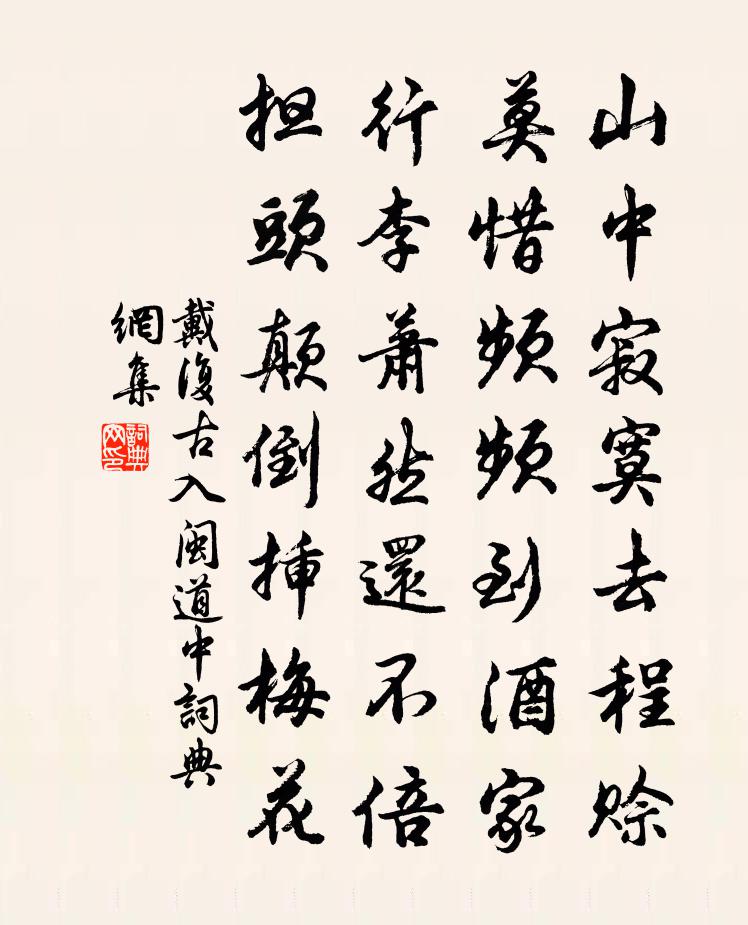 山中寂寞去程赊
莫惜頻頻到酒家
行李萧然還不倍
担頭颠倒挿梅花
戴復古入閩道中詞典
網集
詞典
网印